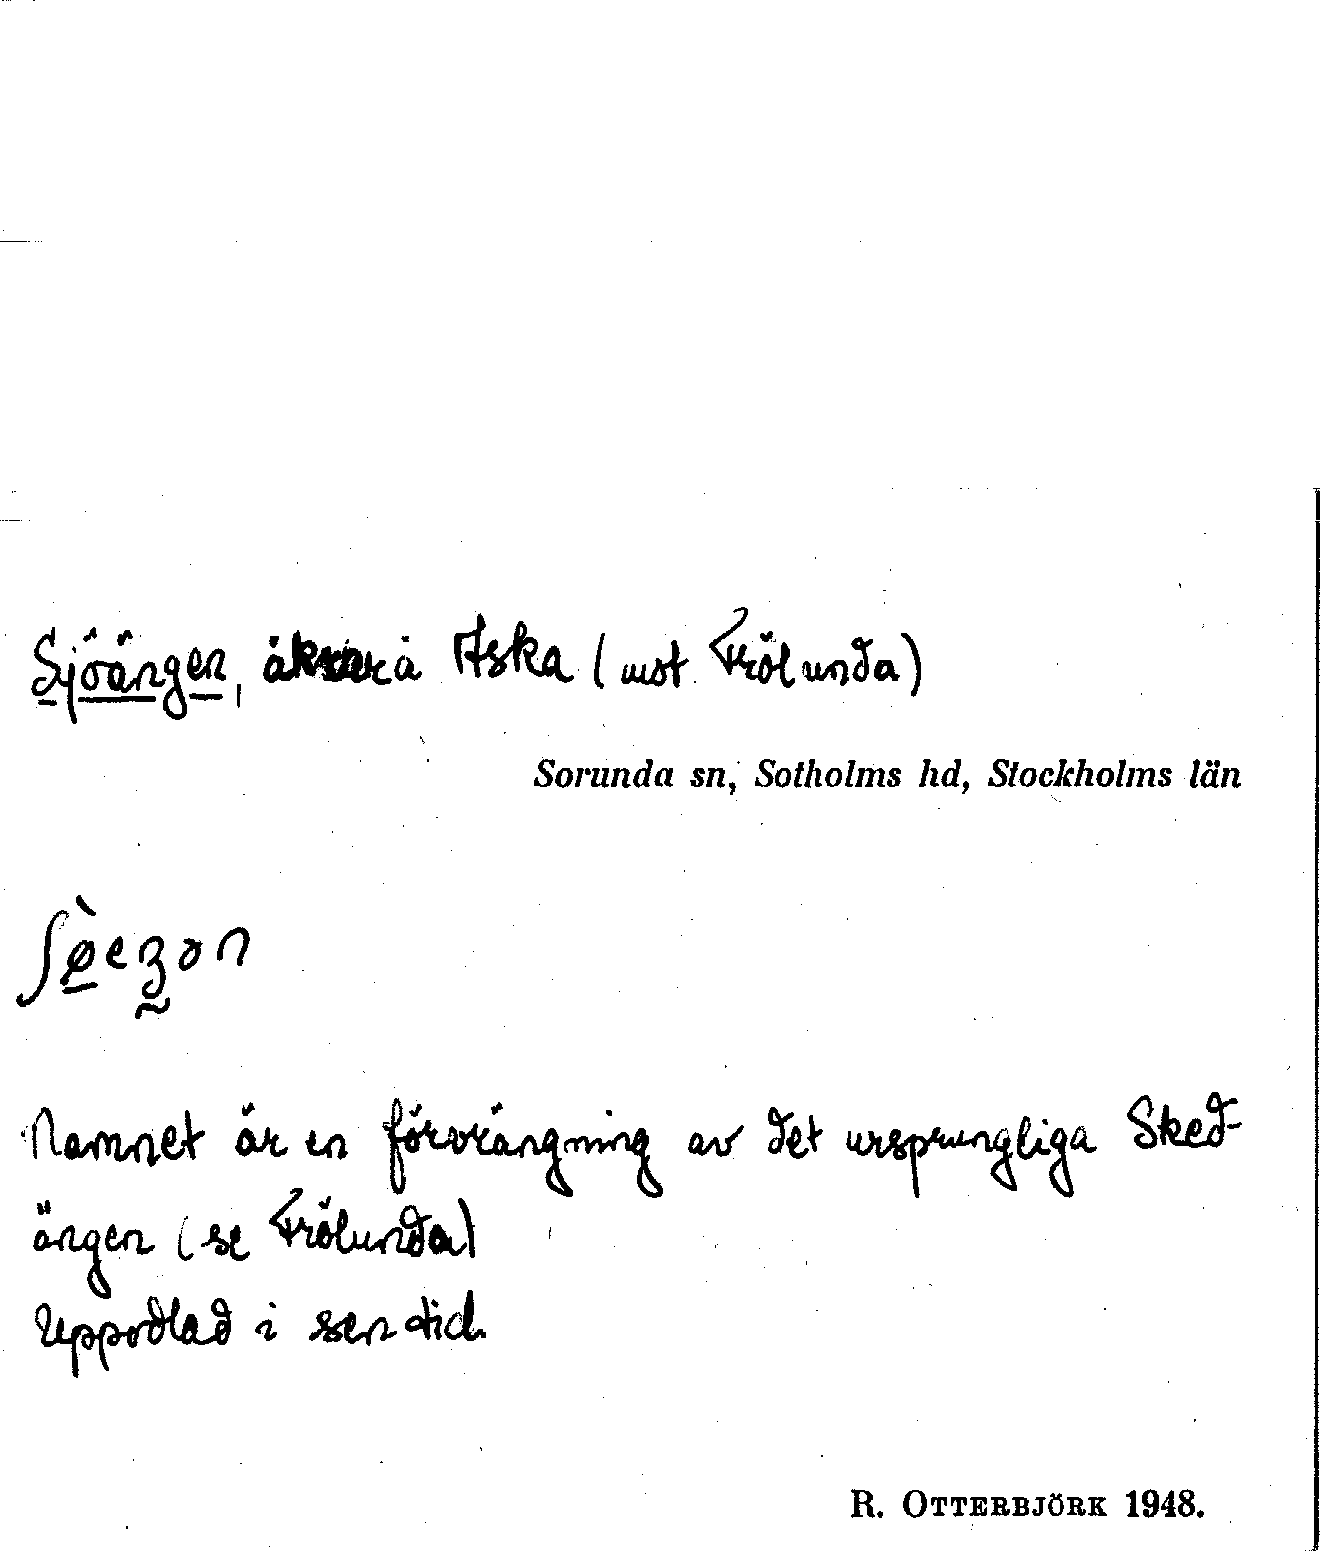 Sjöängen, åkrar å Aska (mot Frölunda)
Sorunda sn, Sotholms hd, Stockholms län
Namnet är en förvrängning av det ursprungliga Sked-
ängen (se Frölunda)
Uppodlad i sen tid.
R. OTTERBJÖRK 1948.